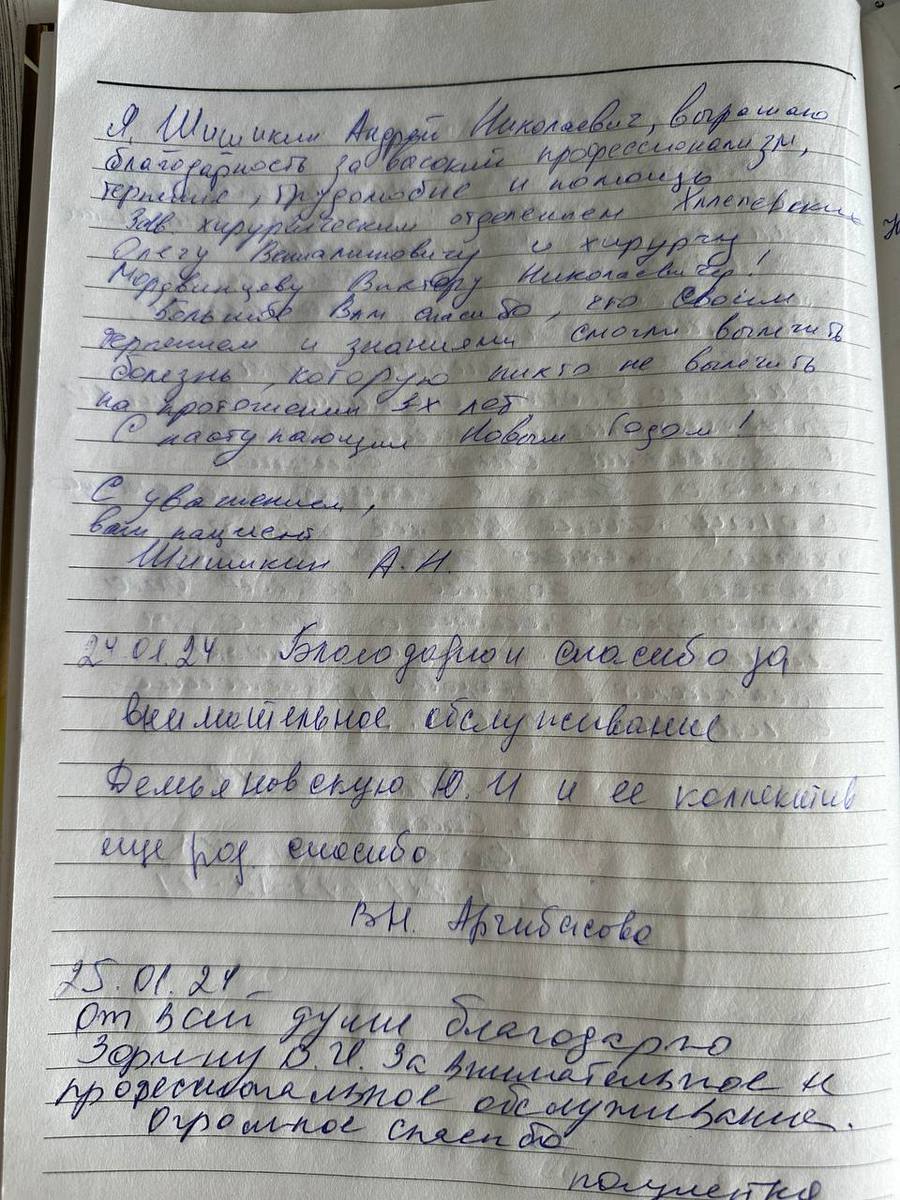 Я, Шишкин Андрей Николаевич, выражаю
благодарность за высокий профессионализм,
терпение, трудолюбие и помощь
Зав хирургическим отделением
Олегу Виталиевичу и хирургу
Мордвинцеву Виктору Николаевичу!
Большое Вам спасибо, что своим
терпением и знаниями смогли вылечить
болезнь, которую никто не вылечить
на протяжении 3х лет
С наступающим Новым Годом!
С уважением,
ваш пациент
Шишкин А.Н.
24.01.24 спасибо за
внимательное обслуживание
Демьяновскую Ю.И и ее коллектив
еще раз спасибо
ВН.
25.01.24
От всей души благодарю
Зорину В.И. за внимательное и
профессиональное обслуживание.
Огромное спасибо